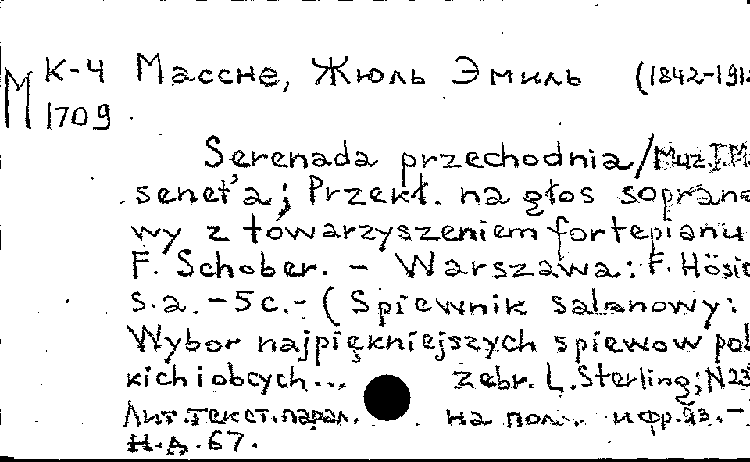 К-4 Массне, Жюль Эмиль (1842-191
М 1709
Serenada przechodnia/Muz.J.M
senet'a; Przekł. na głos soprano
wy z towarzyszeniem fortepianu
F. Schober. - Warszawa: F. Hösic
s.a. - 5c. - (Spiewnik salanowy:
Wybor najpiękniejszych spiewow pol
kich i obcych... zebr. L. Sterling; N23
Лит.текст.парал. на пол. и фр.яз. -
Н.Д. 67.